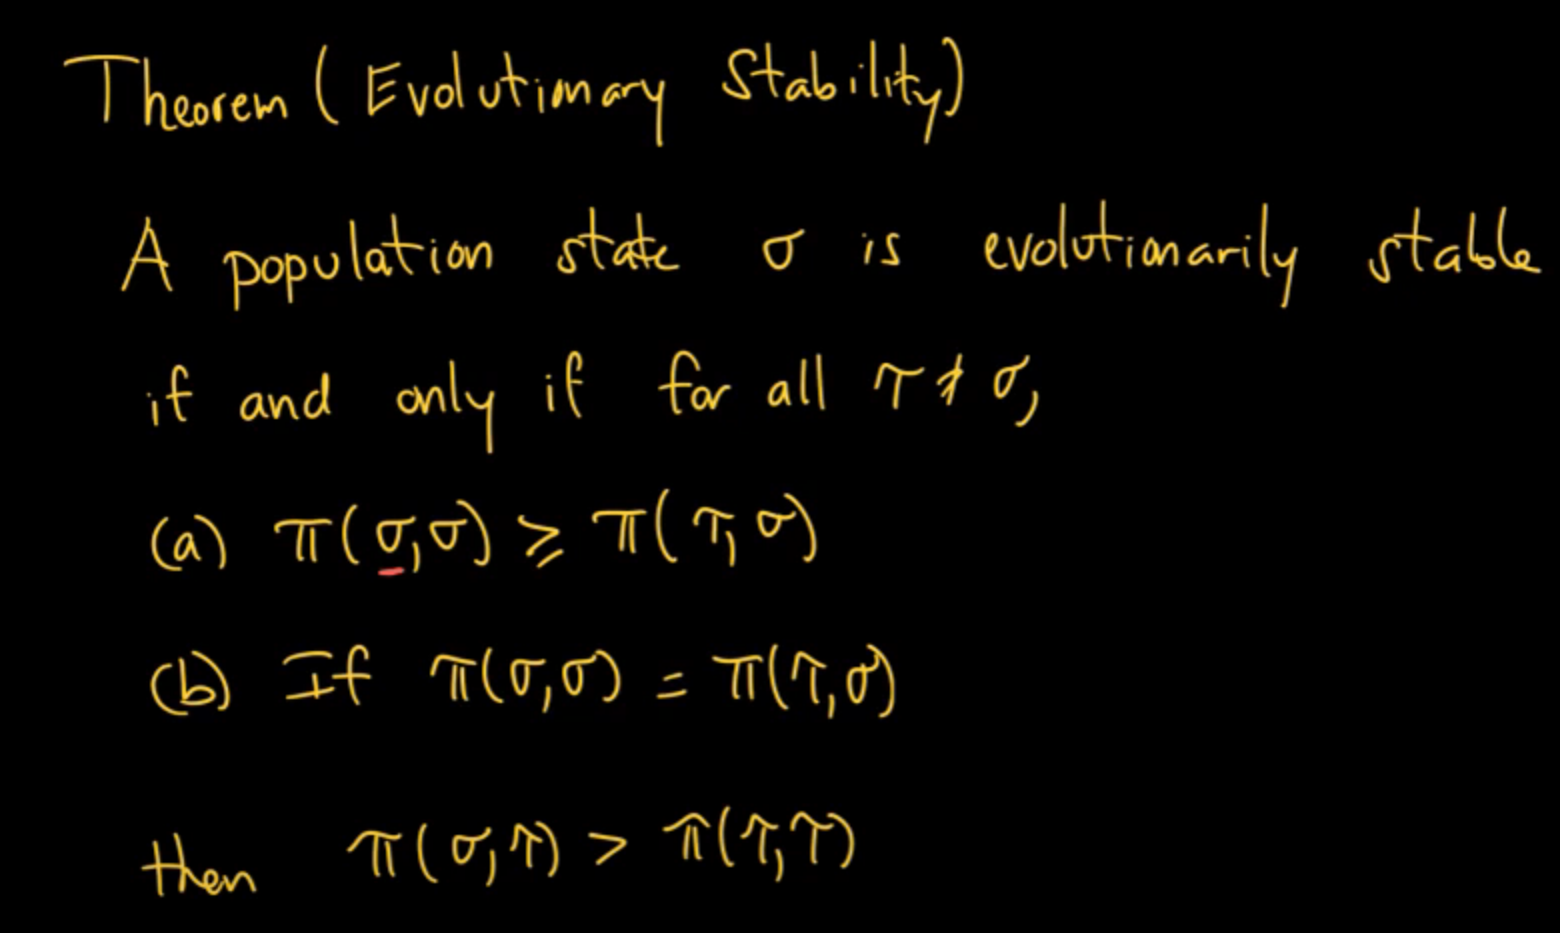 Theorem (Evolutionary Stability)
A population state σ is evolutionarily stable
if and only if for all τ ≠ σ,
(a) π(σ,σ) ≥ π(τ,σ)
(b) If π(σ,σ) = π(τ,σ)
then π(σ,τ) > π(τ,τ)